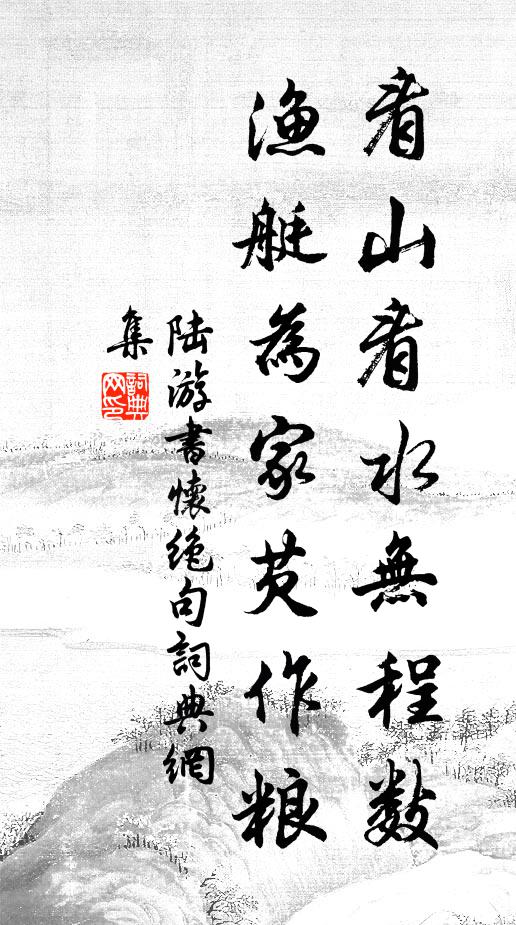 看山看水無程數
漁艇為家芡作粮
陸游書懷絕句詞典網
集
詞典網印